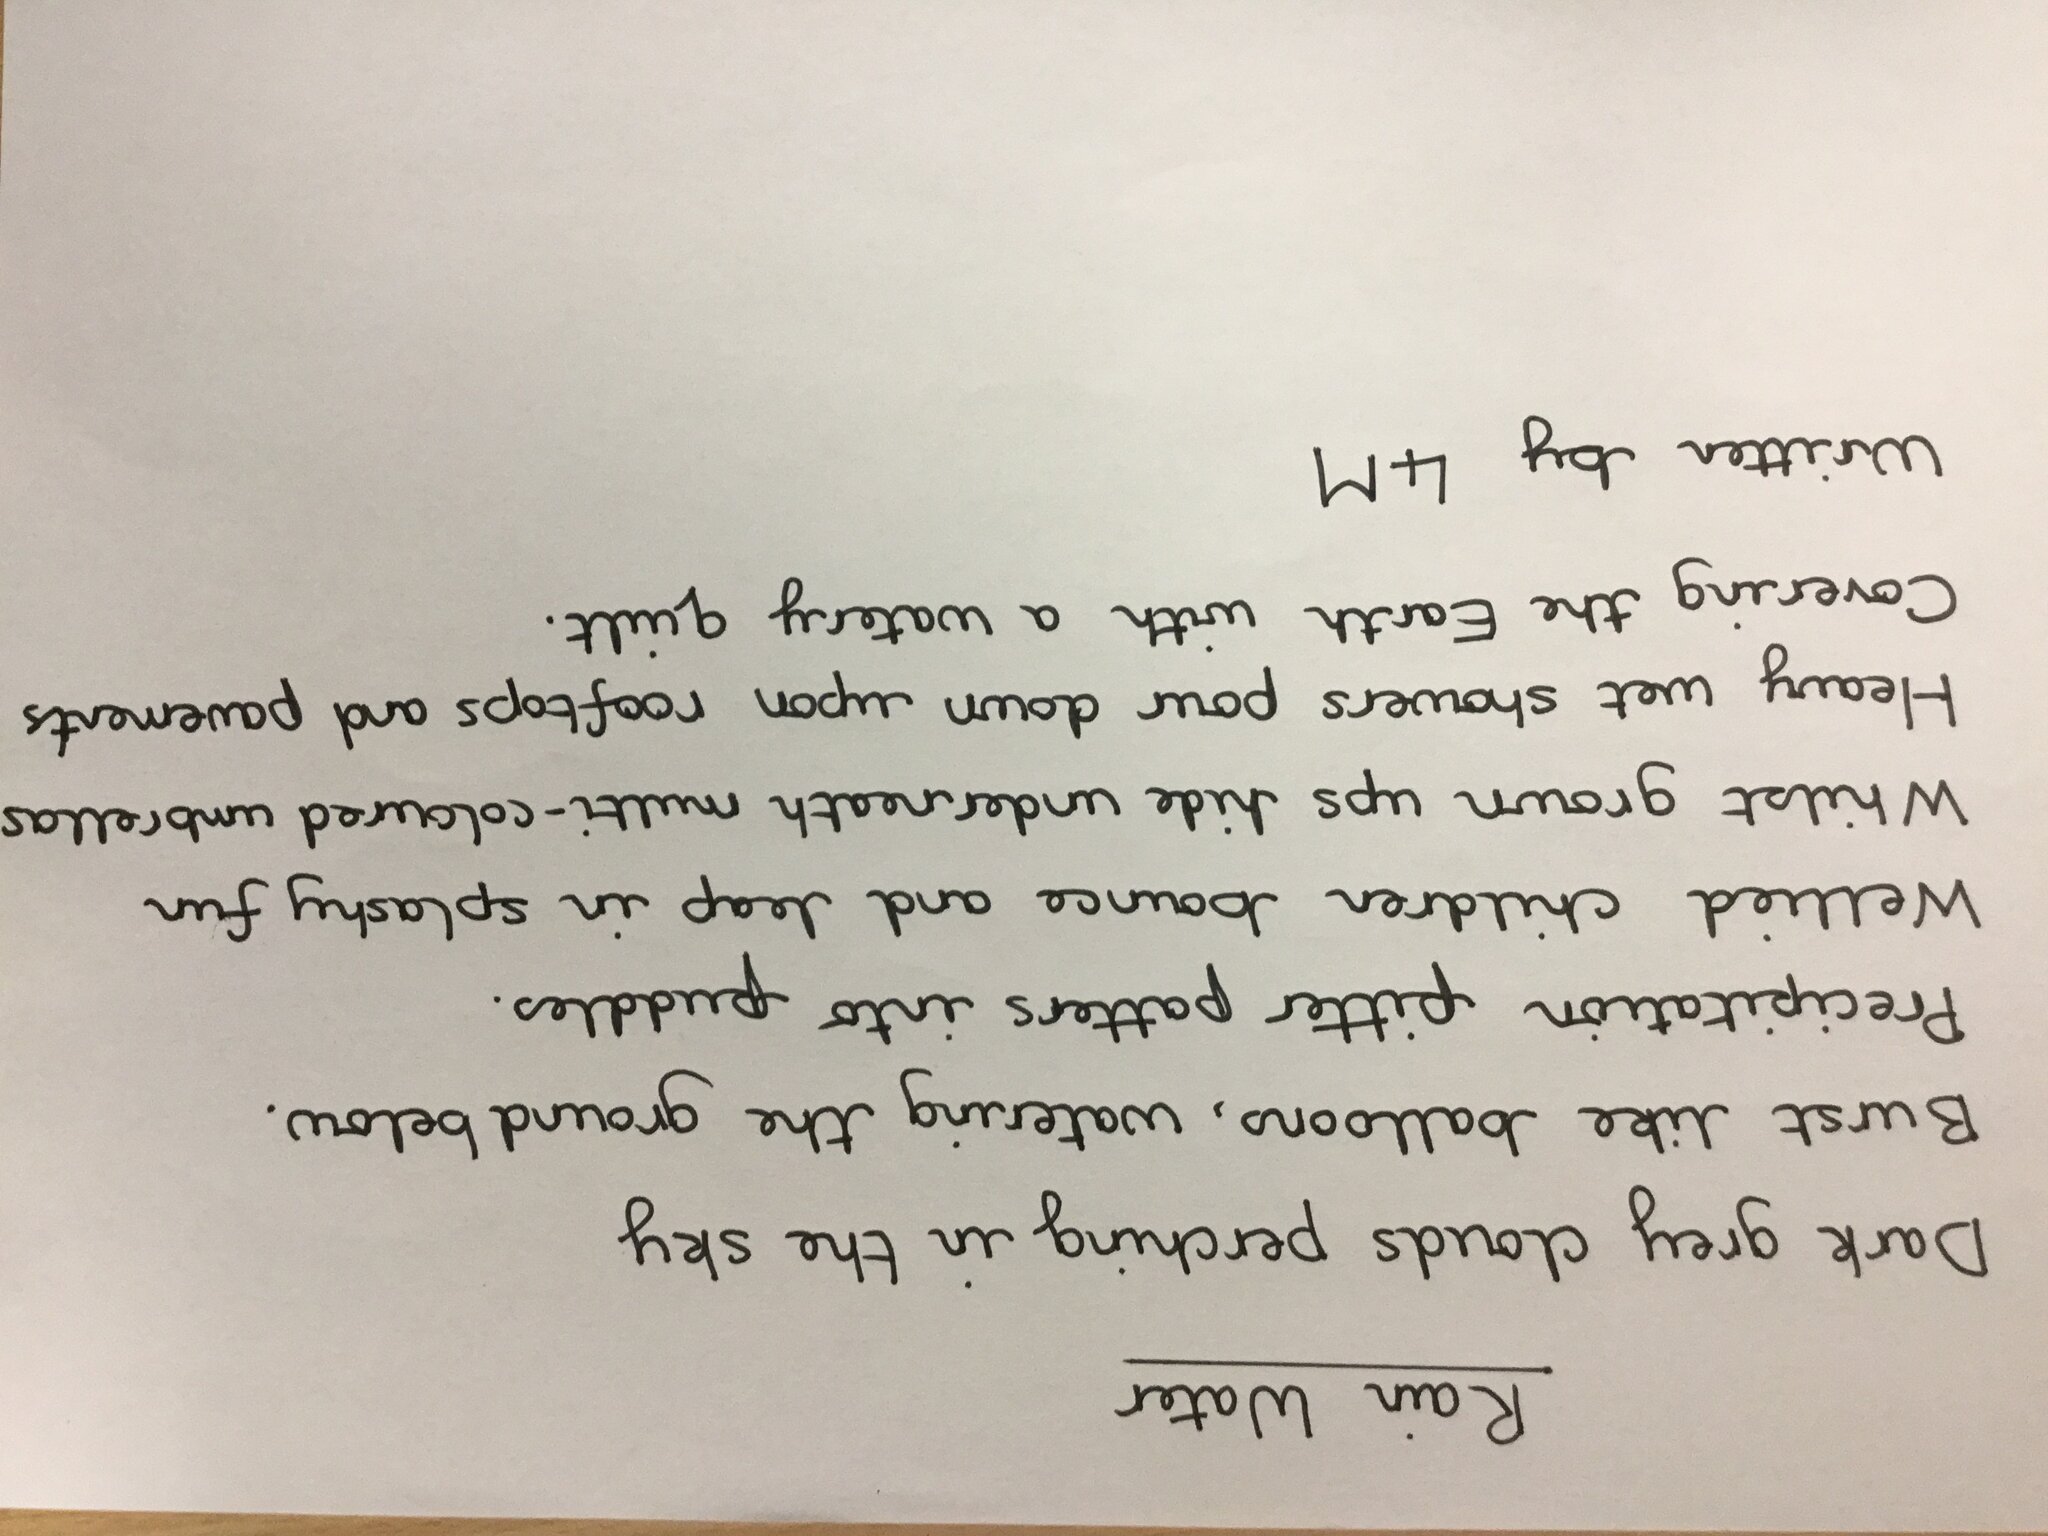 Rain Water
Dark grey clouds perching in the sky
Burst like balloons, watering the ground below.
Precipitation pitter patters into puddles.
Wellied children bounce and leap in splashy fun
Whilst grown ups hide underneath multi-coloured umbrellas
Heavy wet showers pour down upon rooftops and pavements
Covering the Earth with a watery quilt.
Written by 4M